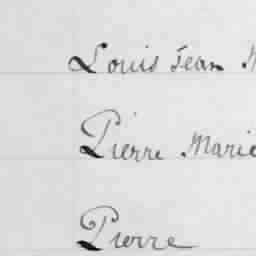 Louis Jean
Pierre Marie
Pierre